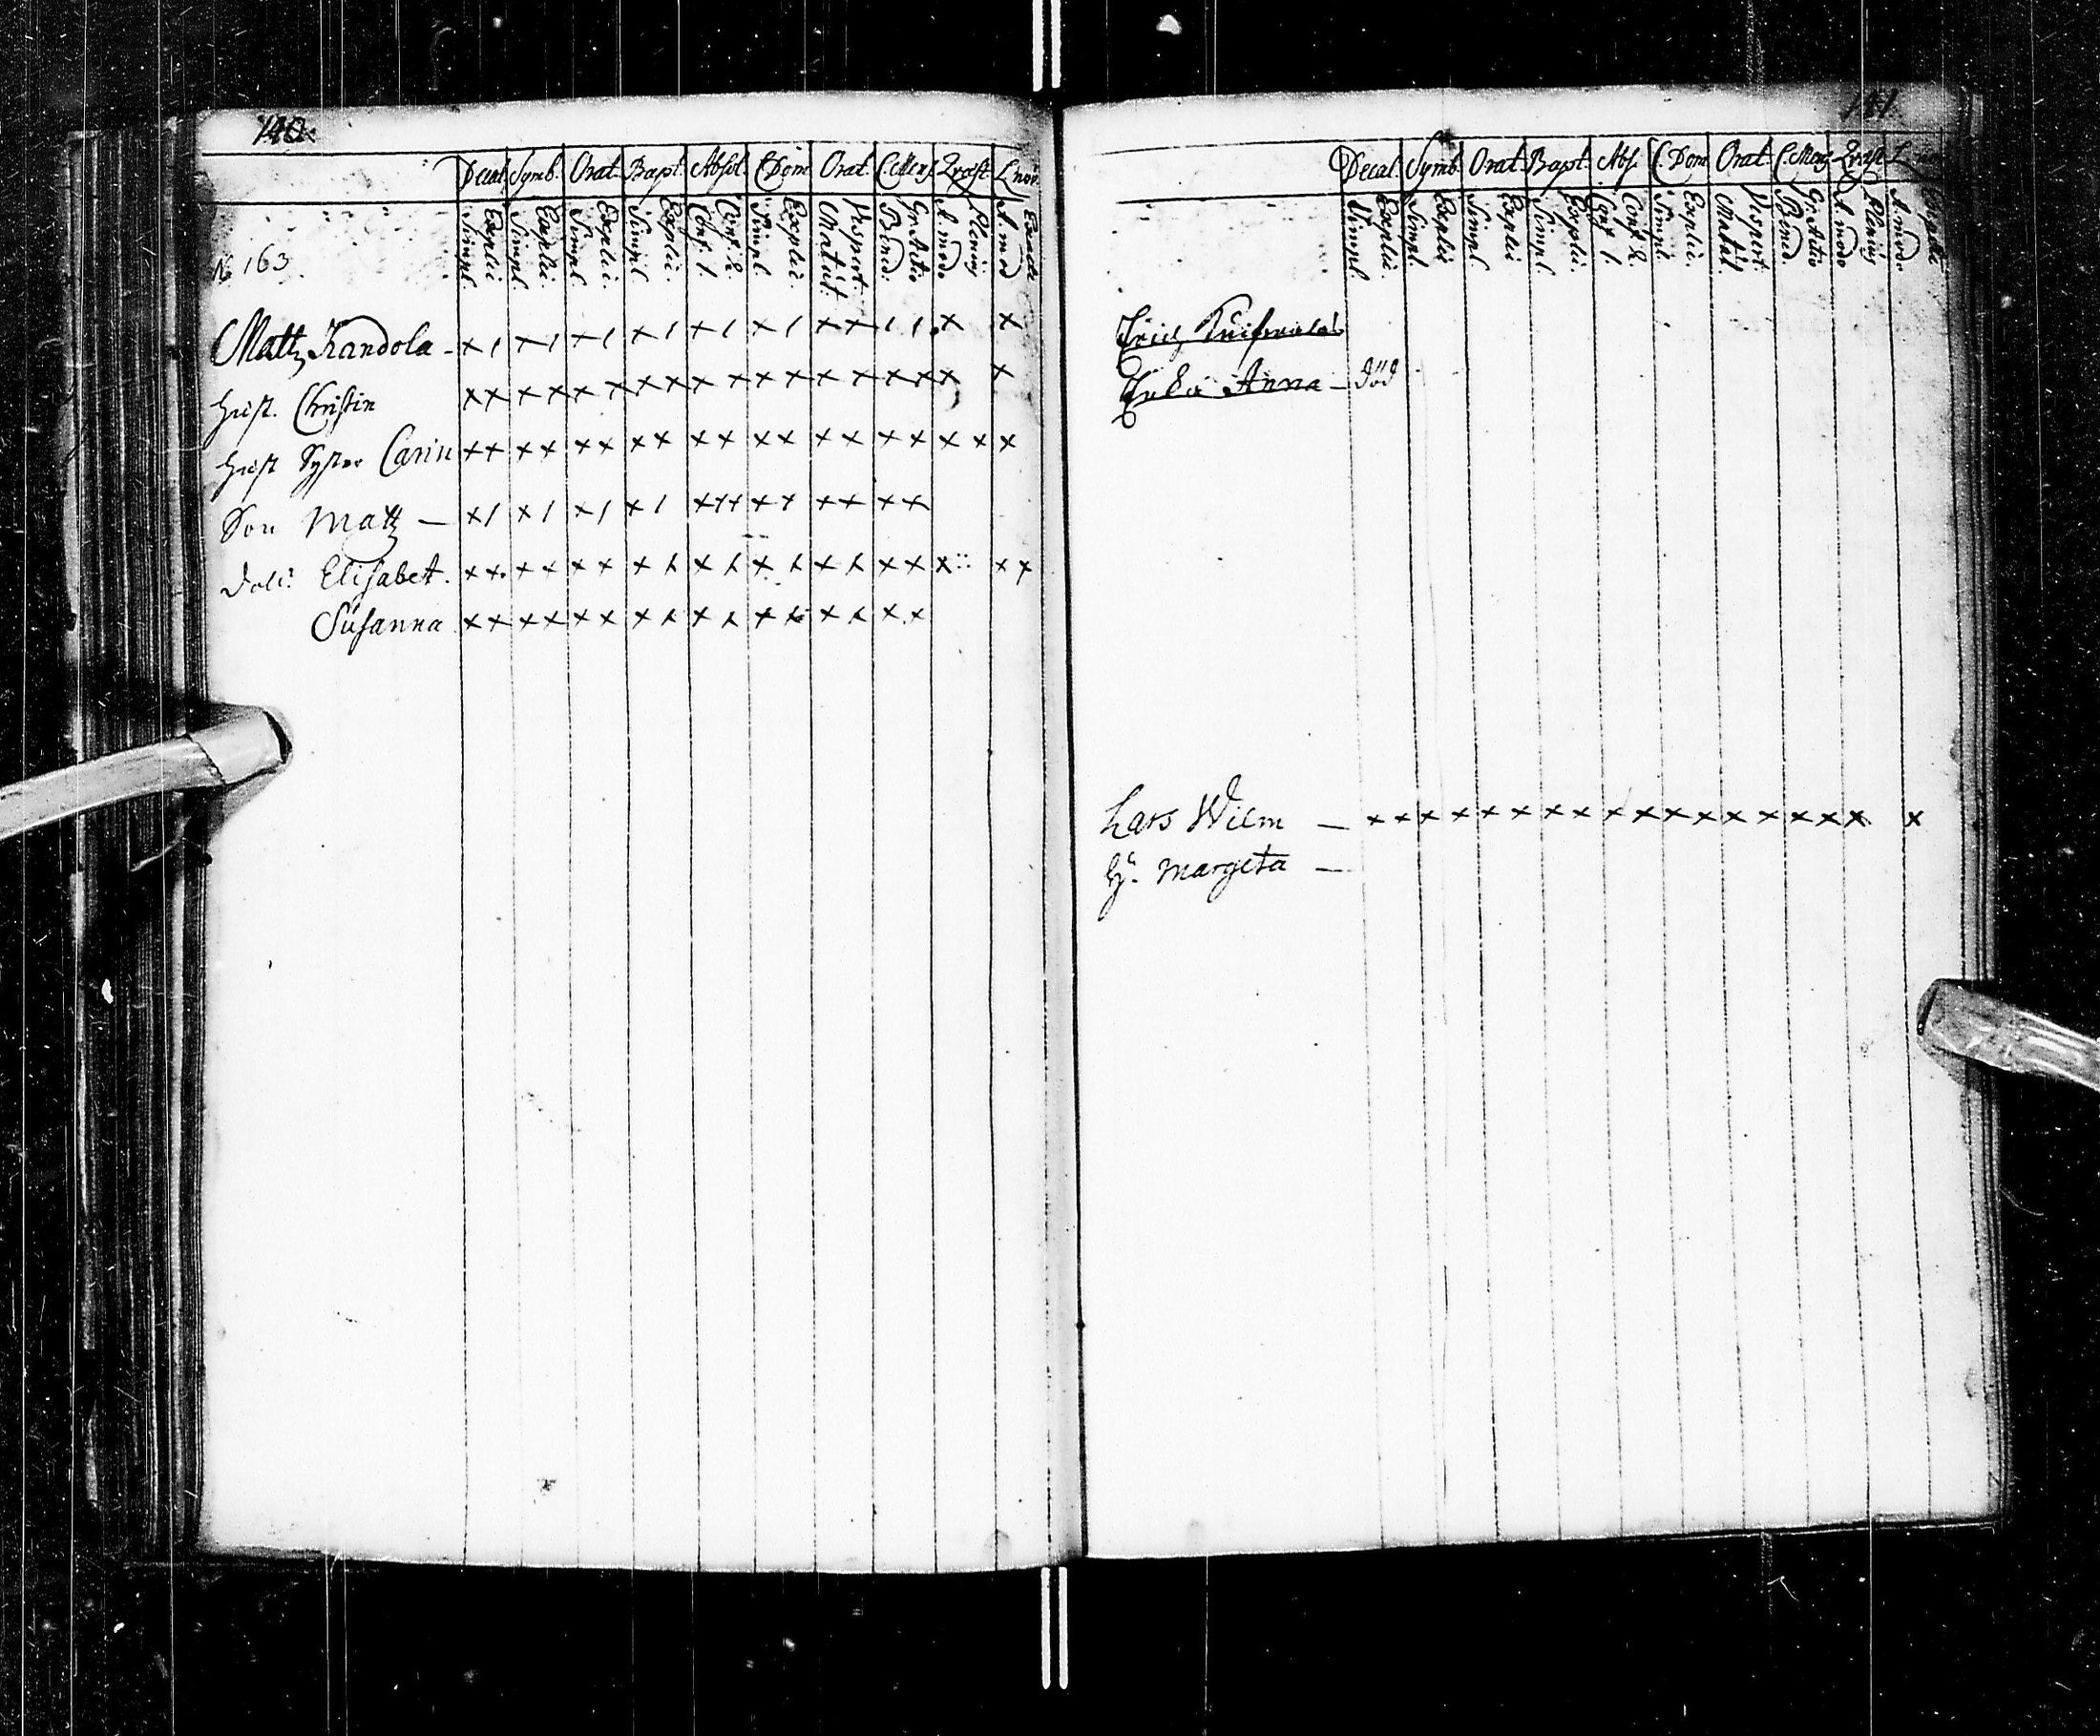 140.
Decal. Symb. Orat. Bapt. Absol. C Dom Orat. C. Mens. Qvæst. L nov.
Simpl. Explic. Simpl. Explic. Simpl. Explic. Simpl. Explic. Conf. 1. Conf. 2. Simpl. Explic. Matut. Vespert. Bened. Gr: Actio A. modo Plenius A. mod Exacte
No 163
Matts Kandola - x 1 x 1 x 1 x 1 x 1 x 1 x x 1 1 x x
Hust. Christin x x x x x x x x x x x x x x x x x x
Hust Syster Carin x x x x x x x x x x x x x x x x x x x
Son Matts — x 1 x 1 x 1 x 1 x x x x x x x x x
Dott: Elisabet. x x x x x x x x x x x x x x x x x x x
Susanna x x x x x x x x x x x x x x x x
141
Decal. Symb. Orat. Bapt. Abs. C. Dom Orat. C. Mens Qvæst L nov
Simpl. Explic. Simpl. Explic Simpl. Explic Simpl. Explic. Conf 1. Conf 2. Simpl. Explic. Matut. Vespert. Bened. Gr: Actio A. modo Plenius A. modo
Erich
Enkia Anna — död
Lars Wilm — x x x x x x x x x x x x x x x x x x
H: Margeta —